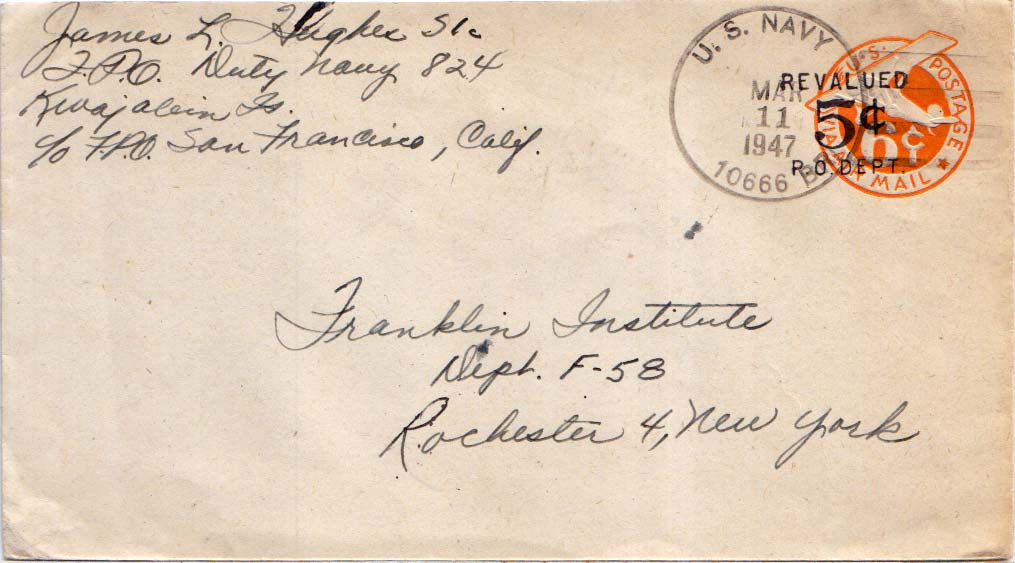 James L. Hughes S1c
F.P.O. Duty Navy 824
Kwajalein Is.
c/o F.P.O. San Francisco, Calif.
U. S. NAVY
MAR
11
1947
10666 BR.
REVALUED
5¢
P.O. DEPT.
U.S. POSTAGE
6¢
VIA AIR MAIL
Franklin Institute
Dept. F-58
Rochester 4, New York